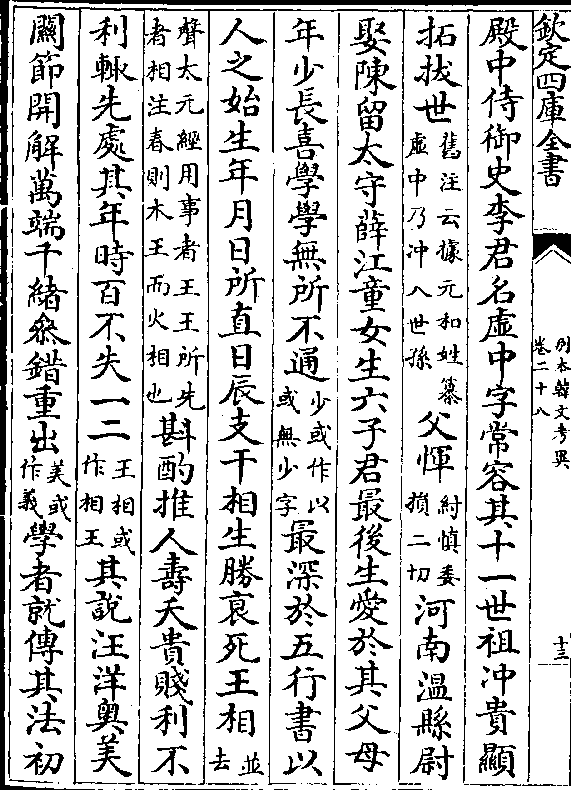 欽定四庫全書
別本韓文考異
卷二十八
十三
殿中侍御史李君名虛中字常容其十一世祖沖貴顯
拓拔世舊注云據元和姓纂虛中乃沖八世孫父惲紆慎委損二切河南溫縣尉
娶陳留太守薛江童女生六子君最後生愛於其父母
年少長喜學學無所不通少或作以或無少字最深於五行書以
人之始生年月日所直日辰支干相生勝衰死王相並去
聲太元經用事者王王所先者相注春則木王而火相也斟酌推人壽夭貴賤利不
利輒先處其年時百不失一二王相或作相王其說汪洋奧美
關節開解萬端千緒叅錯重出美或作義學者就傳其法初